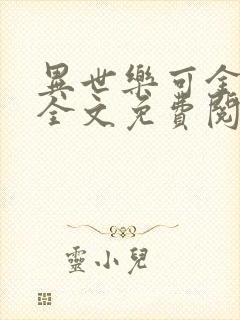 異世樂可全
全文免費閱
靈小兒